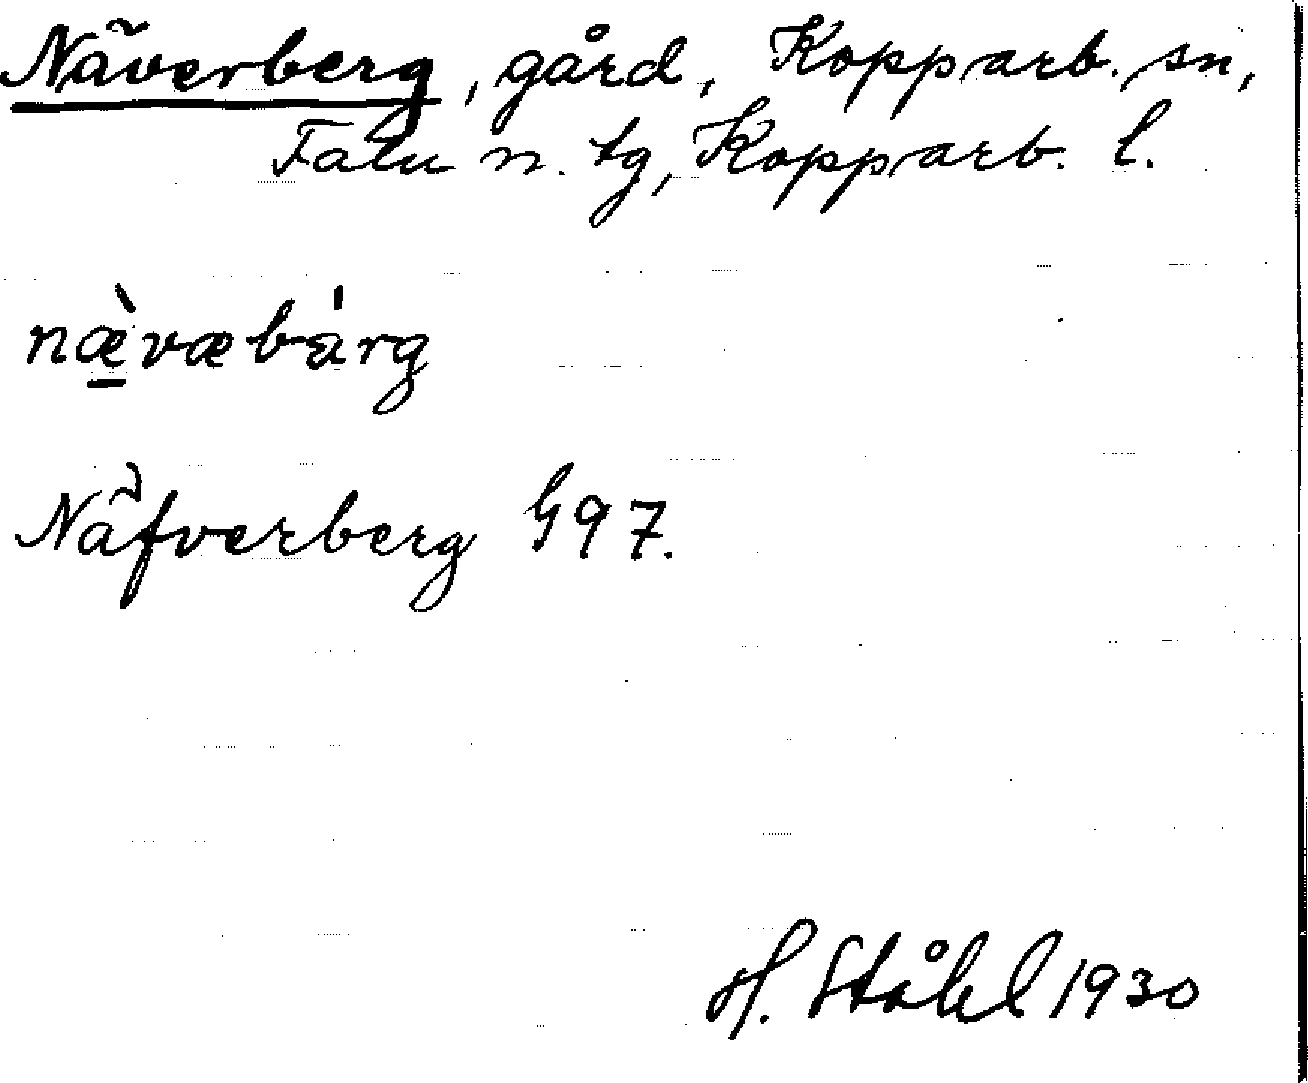 Näverberg, gård, Kopparb. sn,
Falu n. tg, Kopparb. l.
næ̀væbárg
Näfverberg G97.
H. Ståhl 1930